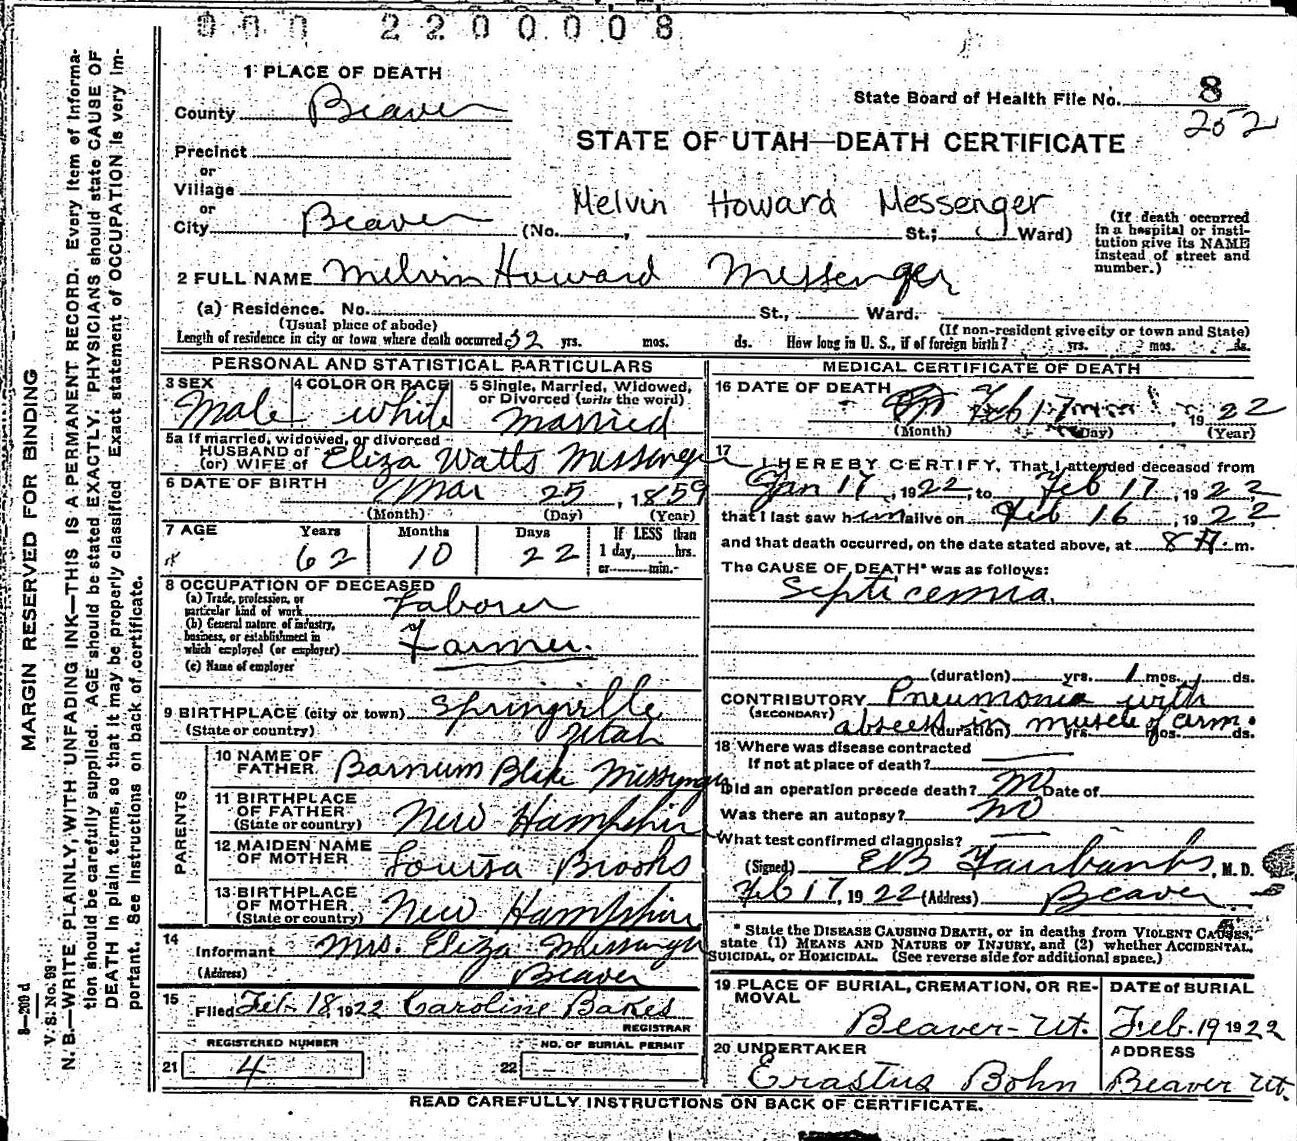 000 2200008
MARGIN RESERVED FOR BINDING
N. B.—WRITE PLAINLY, WITH UNFADING INK—THIS IS A PERMANENT RECORD. Every item of informa-
tion should be carefully supplied. AGE should be stated EXACTLY. PHYSICIANS should state CAUSE OF
DEATH in plain terms, so that it may be properly classified. Exact statement of OCCUPATION is very im-
portant. See instructions on back of certificate.
V. S. No. 99
8—200 d
1 PLACE OF DEATH
County Beaver
State Board of Health File No. 8
252
STATE OF UTAH—DEATH CERTIFICATE
Precinct
or
Village
or
City Beaver (No. , St.; Ward)
Melvin Howard Messenger
(If death occurred
in a hospital or insti-
tution give its NAME
instead of street and
number.)
2 FULL NAME Melvin Howard Messenger
(a) Residence. No. St., Ward.
(Usual place of abode) (If non-resident give city or town and State)
Length of residence in city or town where death occurred 52 yrs. mos. ds. How long in U. S., if of foreign birth? yrs. mos. ds.
PERSONAL AND STATISTICAL PARTICULARS
3 SEX Male
4 COLOR OR RACE white
5 Single, Married, Widowed,
or Divorced (write the word)
married
5a If married, widowed, or divorced
HUSBAND of
(or) WIFE of Eliza Watts Messenger
6 DATE OF BIRTH Mar 25, 1859
(Month) (Day) (Year)
7 AGE Years Months Days If LESS than
62 10 22 1 day, hrs.
or min.
8 OCCUPATION OF DECEASED
(a) Trade, profession, or
particular kind of work Laborer
(b) General nature of industry,
business, or establishment in
which employed (or employer) Farmer.
(c) Name of employer
9 BIRTHPLACE (city or town) Springville
(State or country) Utah
PARENTS
10 NAME OF
FATHER Barnum Blake Messenger
11 BIRTHPLACE
OF FATHER
(State or country) New Hampshire
12 MAIDEN NAME
OF MOTHER Louisa Brooks
13 BIRTHPLACE
OF MOTHER
(State or country) New Hampshire
14
Informant Mrs. Eliza Messenger
(Address) Beaver
15
Filed Feb. 18, 1922 Caroline Bakes
REGISTRAR
REGISTERED NUMBER
21 4
NO. OF BURIAL PERMIT
22
MEDICAL CERTIFICATE OF DEATH
16 DATE OF DEATH
Feb 17, 1922
(Month) (Day) (Year)
17 I HEREBY CERTIFY, That I attended deceased from
Jan 17, 1922, to Feb 17, 1922
that I last saw him alive on Feb 16, 1922,
and that death occurred, on the date stated above, at 8 A. m.
The CAUSE OF DEATH* was as follows:
Septicemia.
(duration) yrs. 1 mos. ds.
CONTRIBUTORY Pneumonia with
(SECONDARY) abscess in muscle of arm.
(duration) yrs. mos. ds.
18 Where was disease contracted
If not at place of death?
Did an operation precede death? no Date of
Was there an autopsy? no
What test confirmed diagnosis?
(Signed) EB Fairbanks, M. D.
Feb 17, 1922 (Address) Beaver
* State the DISEASE CAUSING DEATH, or in deaths from VIOLENT CAUSES,
state (1) MEANS AND NATURE OF INJURY, and (2) whether ACCIDENTAL,
SUICIDAL, or HOMICIDAL. (See reverse side for additional space.)
19 PLACE OF BURIAL, CREMATION, OR RE-
MOVAL
Beaver-Ut.
DATE of BURIAL
Feb. 19 1922
20 UNDERTAKER
Erastus Bohn
ADDRESS
Beaver Ut.
READ CAREFULLY INSTRUCTIONS ON BACK OF CERTIFICATE.